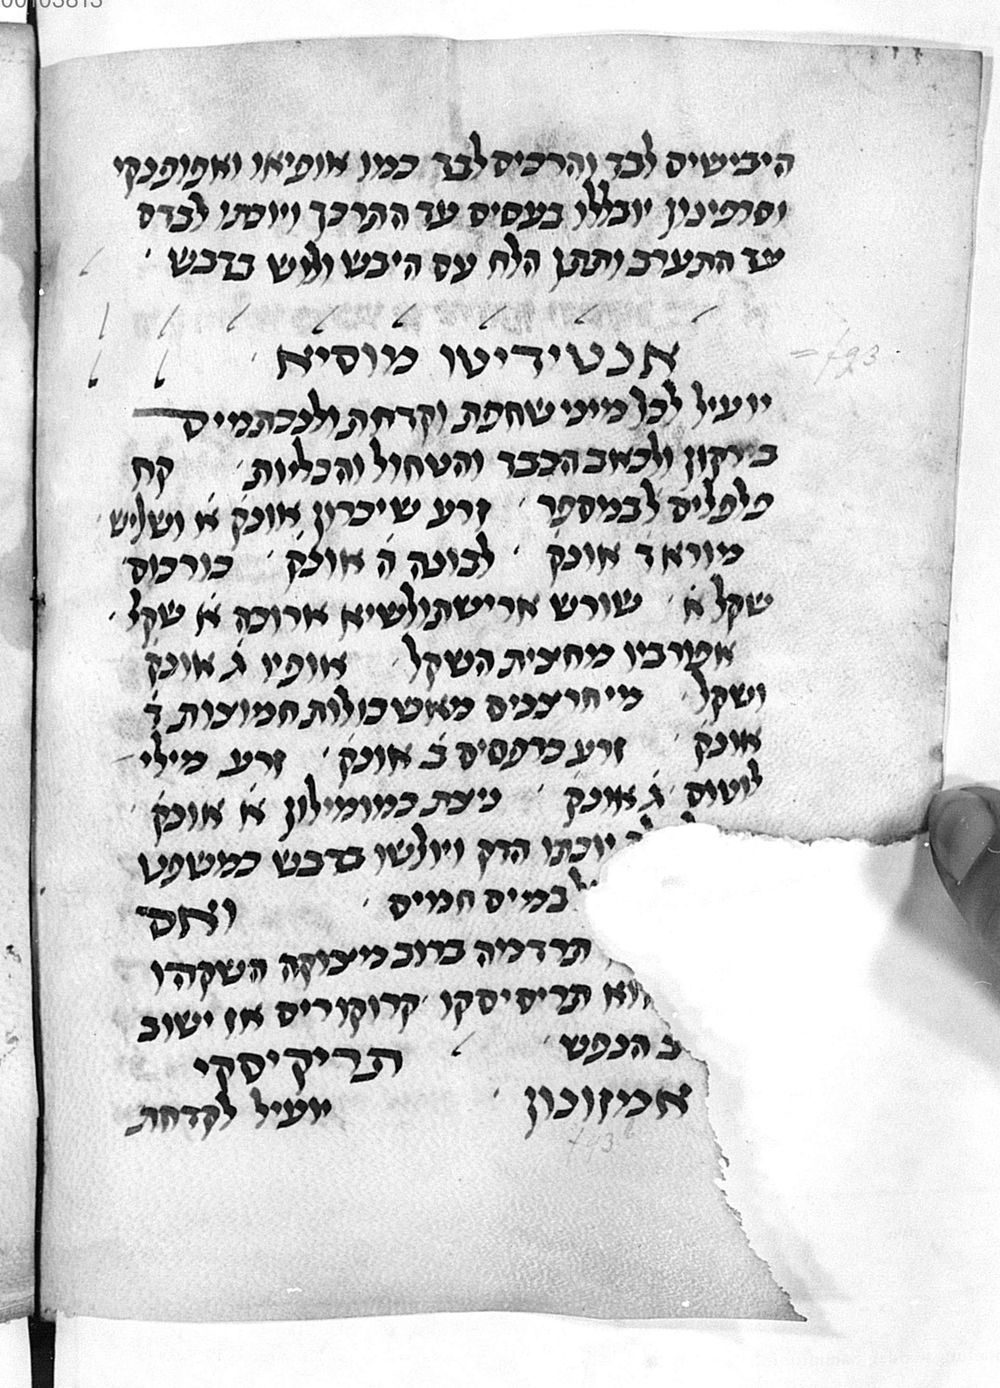 היבישים לבד והרכים לבד כמו אופיאו ואפופנקי
וסרפינון יובללו בעסיס עד ההרכך ויוכתו לבדם
עד התערב ותתן הלח עם היבש ולוש בדבש
אנטידיטו מוסיא
יועיל לכל מיני שחפת וקדחת ולנכתמים
בירקון ולכאב הכבד והטחול והכליות קח
פלפלים לבמספר זרע שיכרון אונק א ושליש
מורא ד אונק לבונה ה אונק כורכום
שקל א שורש ארישתולשיא ארוכה א שקל
אפורביו מחצית השקל אופיו ג אונק
ושקל מיחרצנים מאשכולות חמוצות ד
אונק זרע כרפסים ב אונק זרע מילי
לוטוס ג אונק ניצת כמומילון א אונק
יוכתו הדק ויולשו בדבש כמשפט
במים חמים ואם
תרדמה ברוב מיצוקה השקהו
הוא תריסיסקו קרוקוריס אז ישוב
הנפש
תריקיסקי
אמיזוכון יועיל לקדחת